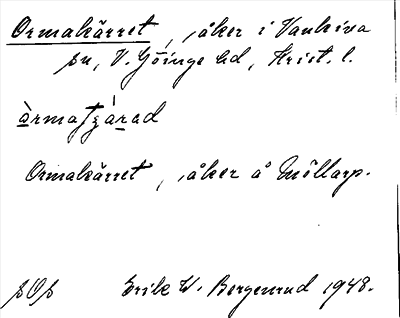 Ormakärret, åker i Vankiva
sn, V. Göinge hd, Krist. l.
Ormakärret, åker å Möllarp.
Erik W. Bergenrud 1948.